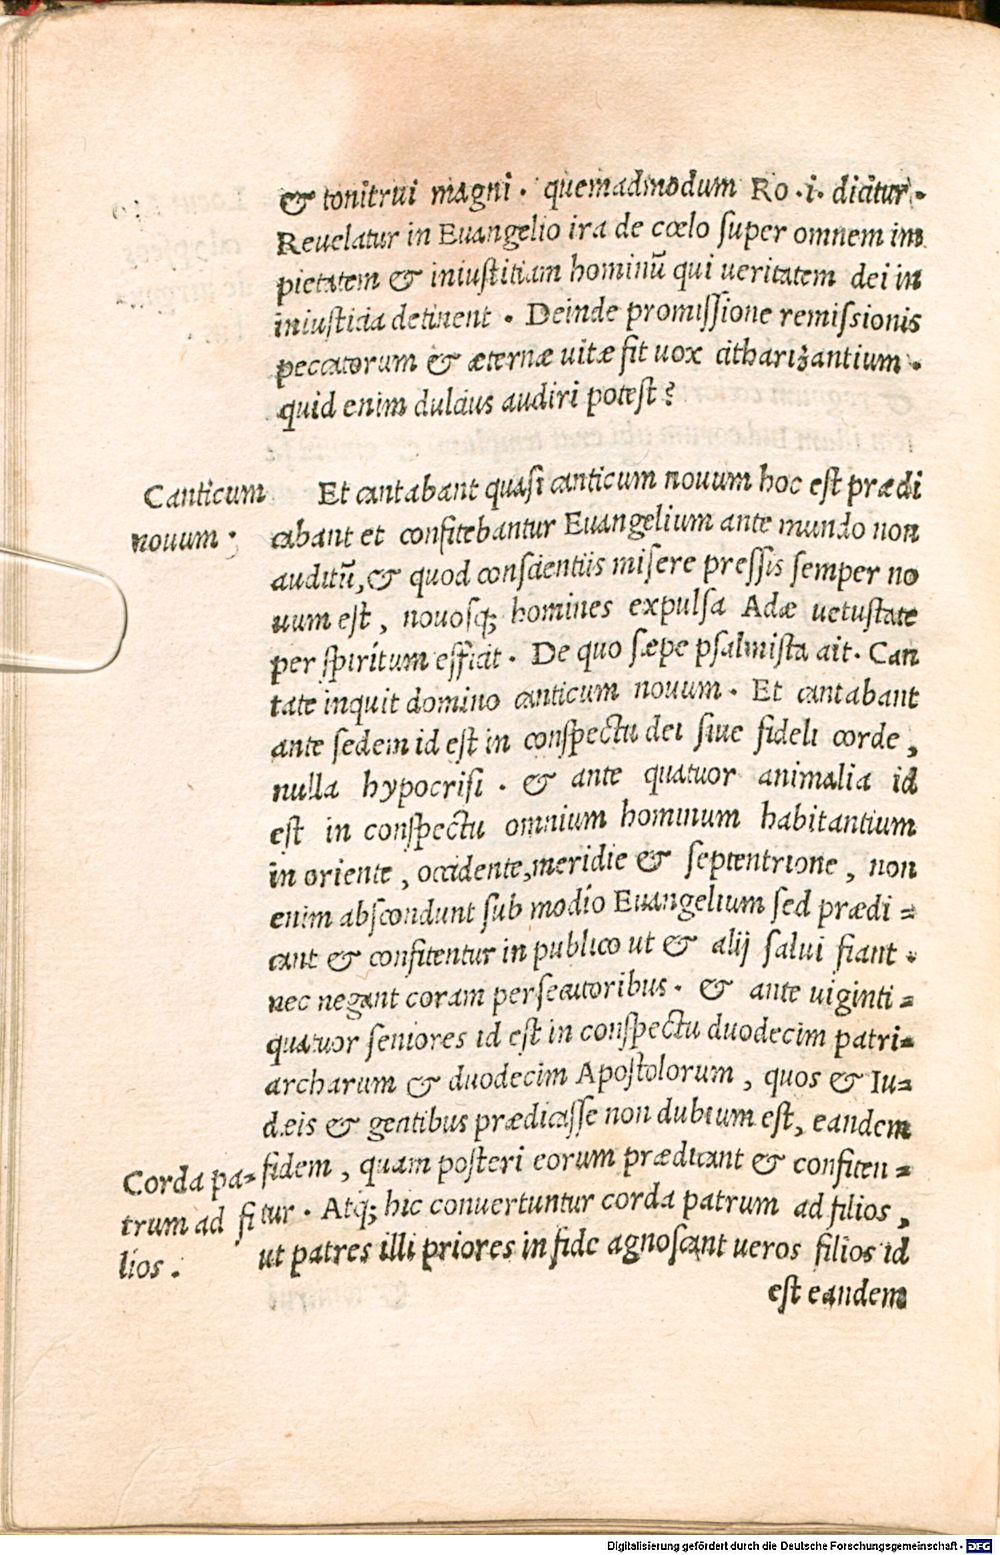 & tonitrui magni. quemadmodum Ro.i. dicitur.
Reuelatur in Euangelio ira de cœlo super omnem im
pietatem & iniustitiam hominū qui ueritatem dei in
iniusticia detinent. Deinde promissione remissionis
peccatorum & æternæ uitæ fit uox citharizantium.
quid enim dulcius audiri potest?
Canticum
nouum:
Et cantabant quasi canticum nouum hoc est prædi
cabant et confitebantur Euangelium ante mundo non
auditū, & quod conscientiis misere pressis semper no
uum est, novosq; homines expulsa Adæ uetustate
per spiritum efficit. De quo sæpe psalmista ait. Can
tate inquit domino canticum nouum. Et cantabant
ante sedem id est in conspectu dei siue fideli corde,
nulla hypocrisi. & ante quatuor animalia id
est in conspectu omnium hominum habitantium
in oriente, occidente, meridie & septentrione, non
enim abscondunt sub modio Euangelium sed prædi=
cant & confitentur in publico ut & alij salui fiant.
nec negant coram persecutoribus. & ante uiginti=
quatuor seniores id est in conspectu duodecim patri=
archarum & duodecim Apostolorum, quos & Iu=
dæis & gentibus prædicasse non dubium est, eandem
fidem, quam posteri eorum prædicant & confiten=
tur. Atq; hic conuertuntur corda patrum ad filios,
ut patres illi priores in fide agnoscant ueros filios id
Corda pa=
trum ad fi
lios.
est eandem
Digitalisierung gefördert durch die Deutsche Forschungsgemeinschaft - DFG